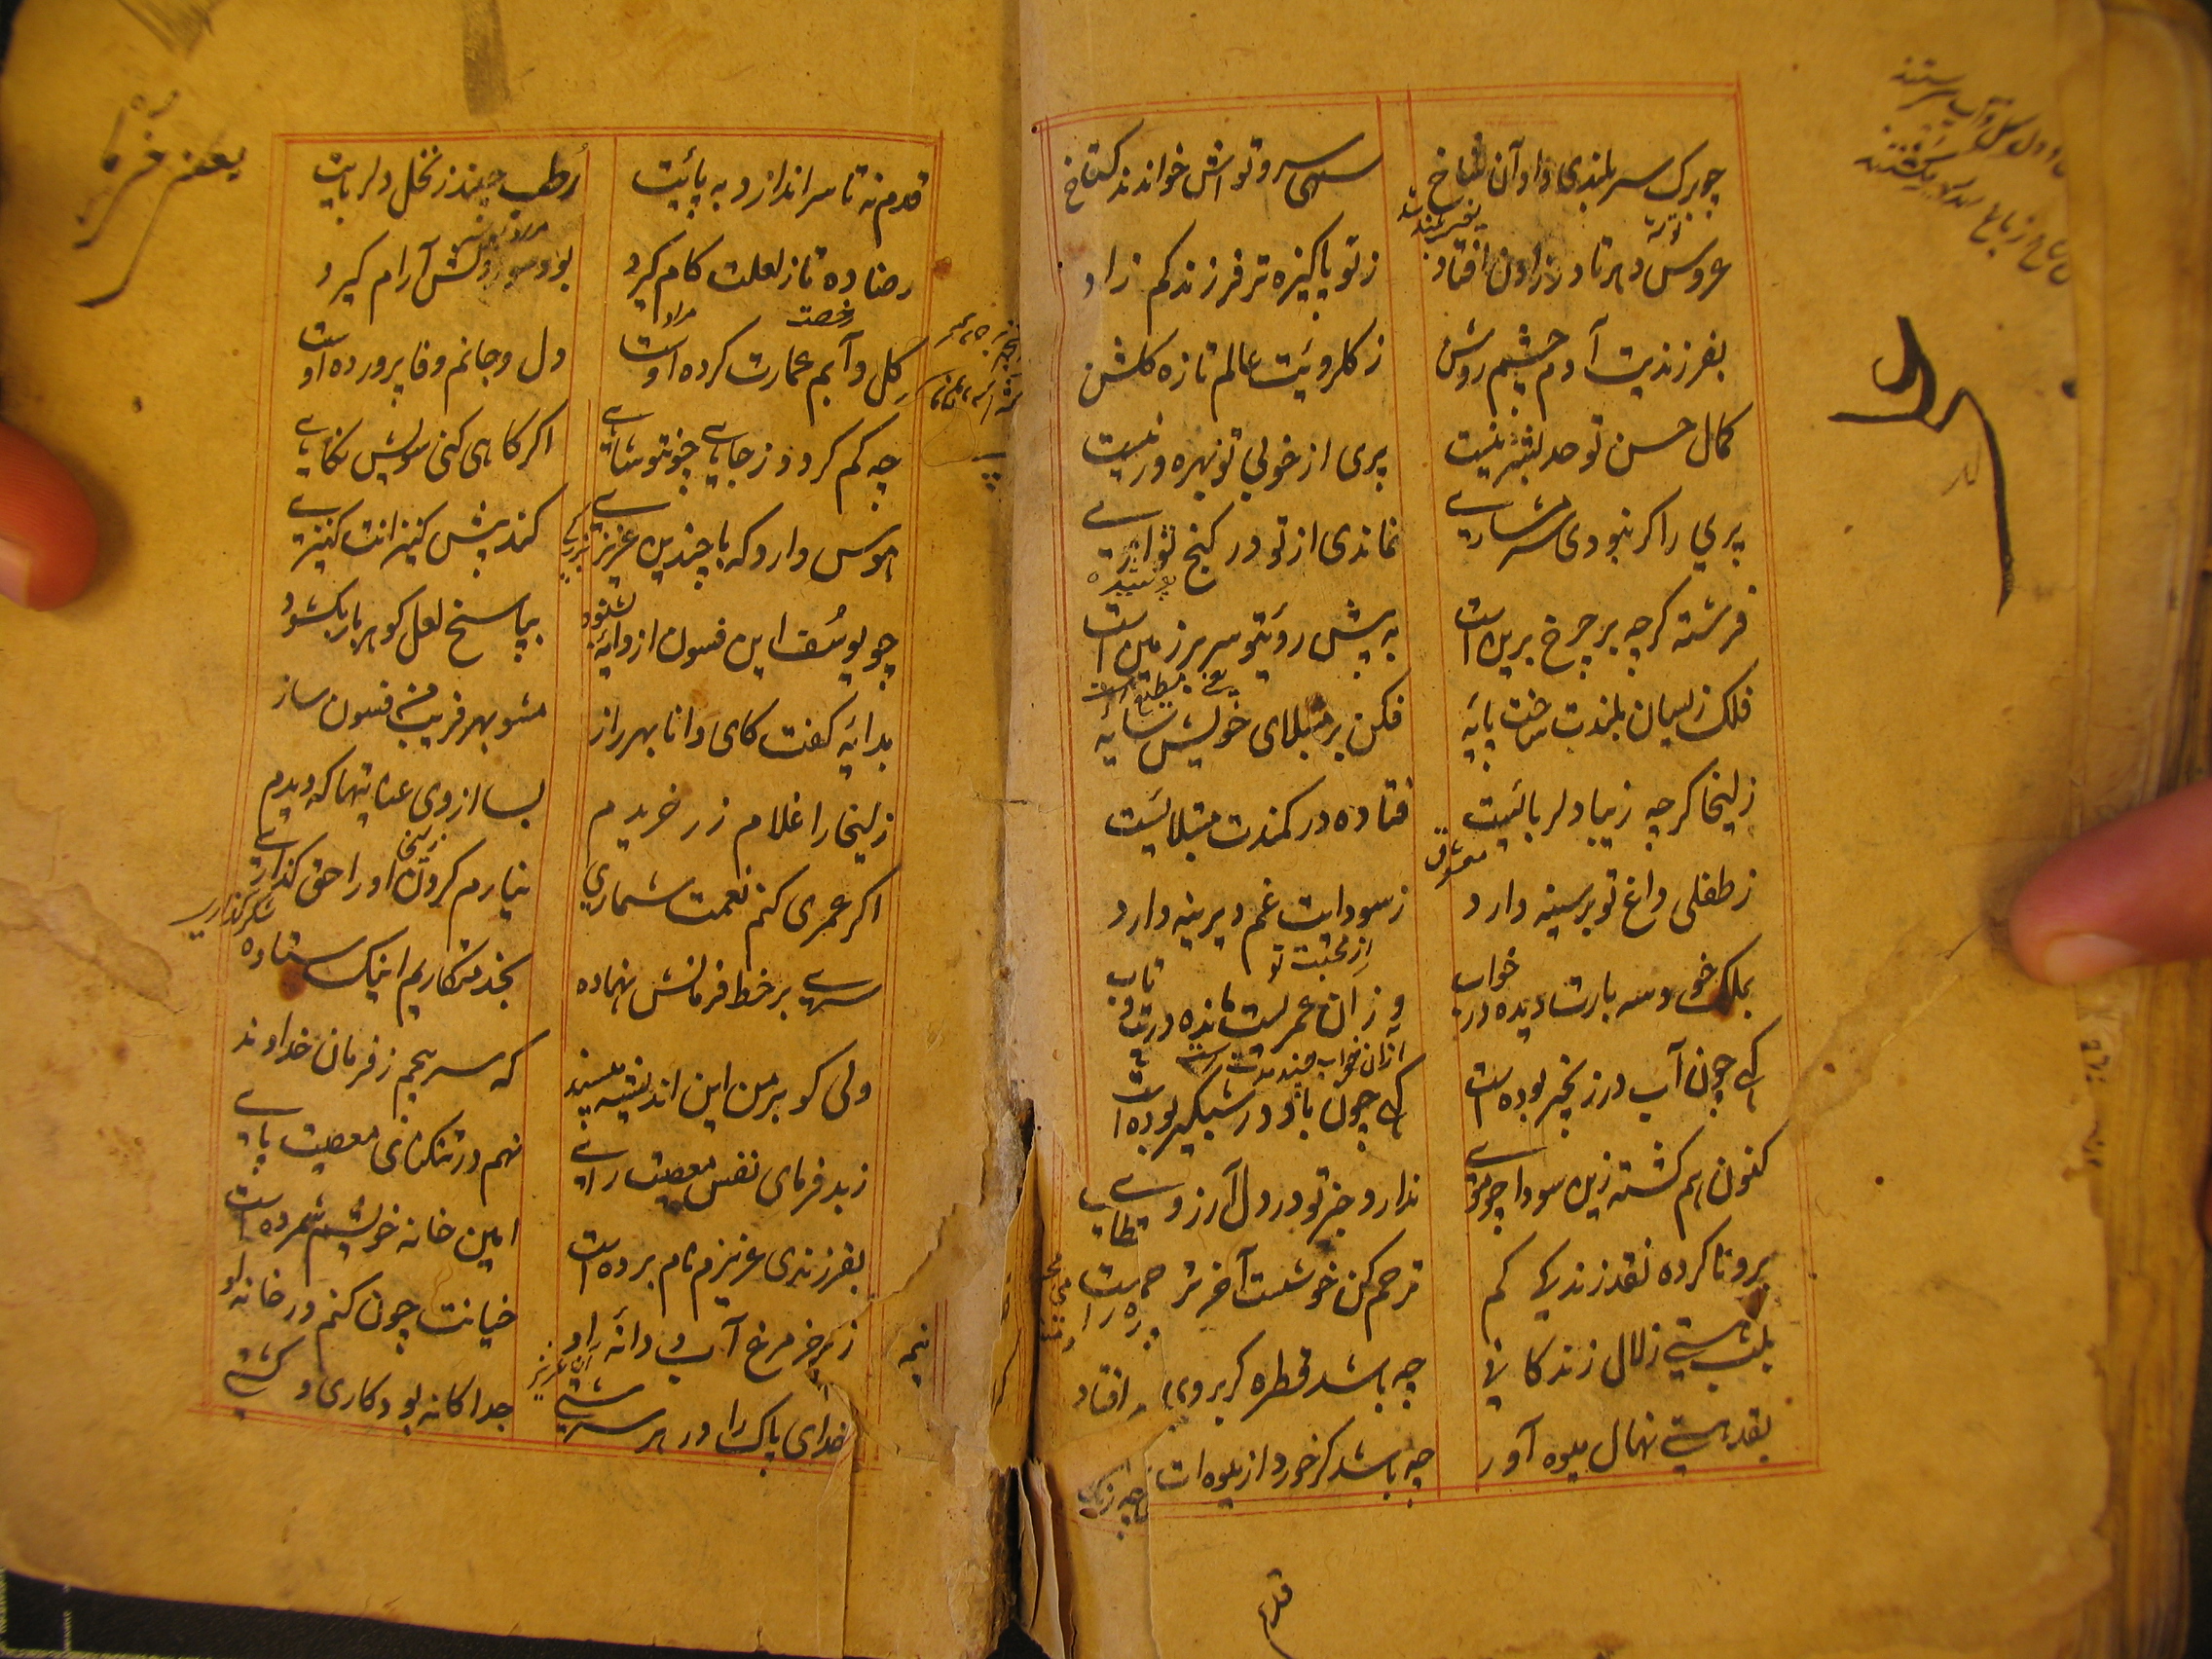 چو برگ سربلندی داد آن شاخ سهی سرو تواش خواندند گستاخ
عروس دهر تا در زادن افتاد ز تو پاکیزه تر فرزند کم زاد
بفرزندیت آدم چشم روشن ز گلرویت عالم تازه گلشن
کمال حسن تو حد بشر نیست پری از خوبی تو بهره ور نیست
پری را گر نبودی شرمساری نماندی از تو در کنج تواری
فرشته گرچه بر چرخ برین است به پیش روی تو سر بر زمین است
فلک زینسان بلندت ساخت پایه فکن بر مبتلای خویش سایه
زلیخا گرچه زیبا دلربائیست فتاده در کمندت مبتلائیست
ز طفلی داغ تو بر سینه دارد ز سودایت غم دیرینه دارد
بملک خود سه بارت دیده در خواب وزان عمریست مانده در تب و تاب
گهی چون آب در زنجیر بوده است گهی چون باد در شبگیر بوده است
کنون هم گشته زین سودا چو موئی ندارد جز تو در دل آرزوئی
بر و تا کرده نقد زندگی کم ترحم کن خوشست آخر ترحم
بلب هستی زلال زندگانی چه باشد قطره گر بروی
بقد هستی نهال میوه آور چه باشد گر خورد از میوه ات
قدم
قدم نه تا سر اندازد به پائیت رطب چیند ز نخل دلربایت
رضا ده تا ز لعلت کام گیرد بود سوز دلش آرام گیرد
گل و آبم عمارت کرده اوست دل و جانم وفا پرورده اوست
چه کم گردد ز جاهی چو تو شاهی اگر گاهی کنی سویش نگاهی
هوس دارد که با چندین عزیزی کند پیش کنیزانت کنیزی
چو یوسف این فسون از دایه بشنود بپاسخ لعل گوهربار بگشود
بدایه گفت کای دانا بهر راز مشو بهر فریب من فسون ساز
زلیخا را غلام زر خریدم بسا از وی عنایتها که دیدم
اگر عمری کنم نعمت شماری نیارم کردن او را حق گذاری
سری بر خط فرمانش نهاده بخدمتکاریم اینک ستاده
ولی گو بر من این اندیشه مپسند که سر پیچم ز فرمان خداوند
ز بد فرمای نفس معصیت رای نهم در تنگنای معصیت پای
بفرزندی عزیزم نام برده است امین خانه خویشم شمرده است
نیم جز مرغ آب و دانه او خیانت چون کنم در خانه او
خدای پاک را در هر سرشتی جداگانه بود کاری و کشتی
یعنی خرما